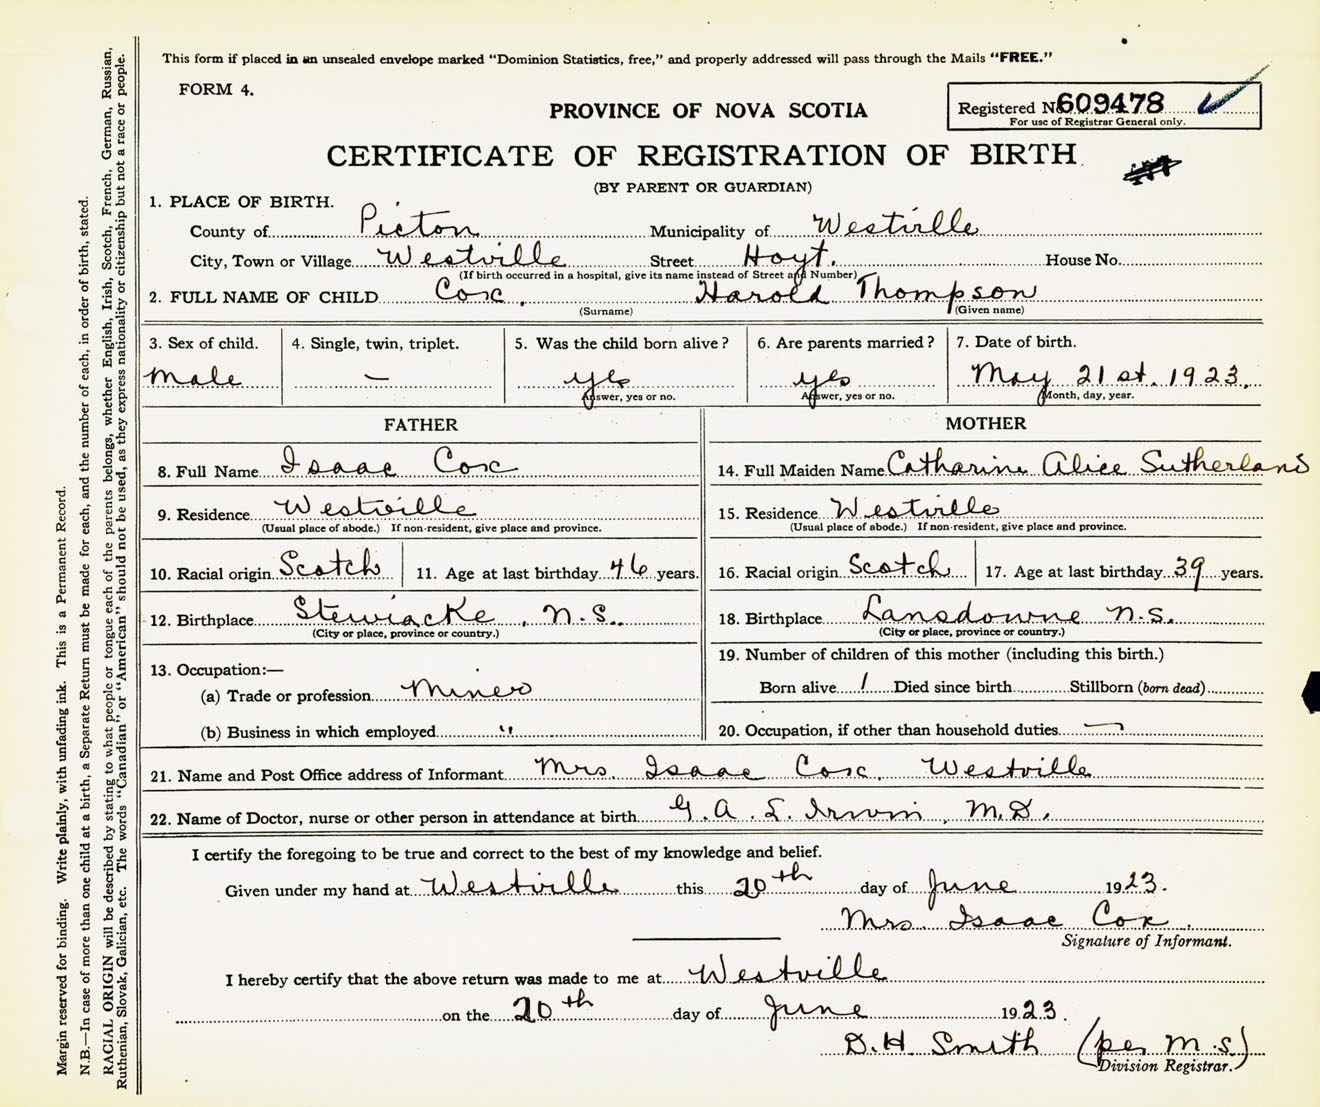 This form if placed in an unsealed envelope marked “Dominion Statistics, free,” and properly addressed will pass through the Mails “FREE.”
FORM 4.
PROVINCE OF NOVA SCOTIA
Registered No. 609478
For use of Registrar General only.
CERTIFICATE OF REGISTRATION OF BIRTH
(BY PARENT OR GUARDIAN)
1. PLACE OF BIRTH.
County of Picton Municipality of Westville
City, Town or Village Westville Street Hoyt. House No.
(If birth occurred in a hospital, give its name instead of Street and Number)
2. FULL NAME OF CHILD Cox, Harold Thompson
(Surname) (Given name)
3. Sex of child. 4. Single, twin, triplet. 5. Was the child born alive? 6. Are parents married? 7. Date of birth.
Male — yes yes May 21st. 1923.
Answer, yes or no. Answer, yes or no. Month, day, year.
FATHER MOTHER
8. Full Name Isaac Cox 14. Full Maiden Name Catharine Alice Sutherland
9. Residence Westville 15. Residence Westville
(Usual place of abode.) If non-resident, give place and province. (Usual place of abode.) If non-resident, give place and province.
10. Racial origin Scotch 11. Age at last birthday 46 years. 16. Racial origin Scotch 17. Age at last birthday 39 years.
12. Birthplace Stewiacke, N.S. 18. Birthplace Lansdowne N.S.
(City or place, province or country.) (City or place, province or country.)
19. Number of children of this mother (including this birth.)
13. Occupation:—
(a) Trade or profession Miner Born alive 1 Died since birth Stillborn (born dead)
(b) Business in which employed " 20. Occupation, if other than household duties —
21. Name and Post Office address of Informant Mrs. Isaac Cox, Westville
22. Name of Doctor, nurse or other person in attendance at birth G.A.L. Irwin, M.D.
I certify the foregoing to be true and correct to the best of my knowledge and belief.
Given under my hand at Westville this 20th day of June 1923.
Mrs. Isaac Cox.
Signature of Informant.
I hereby certify that the above return was made to me at Westville
on the 20th day of June 1923.
D.H. Smith (per M.S.)
Division Registrar.
Margin reserved for binding. Write plainly, with unfading ink. This is a Permanent Record.
N.B.—In case of more than one child at a birth, a Separate Return must be made for each, and the number of each, in order of birth, stated.
RACIAL ORIGIN will be described by stating to what people or tongue each of the parents belongs, whether English, Irish, Scotch, French, German, Russian,
Ruthenian, Slovak, Galician, etc. The words “Canadian” or “American” should not be used, as they express nationality or citizenship but not a race or people.